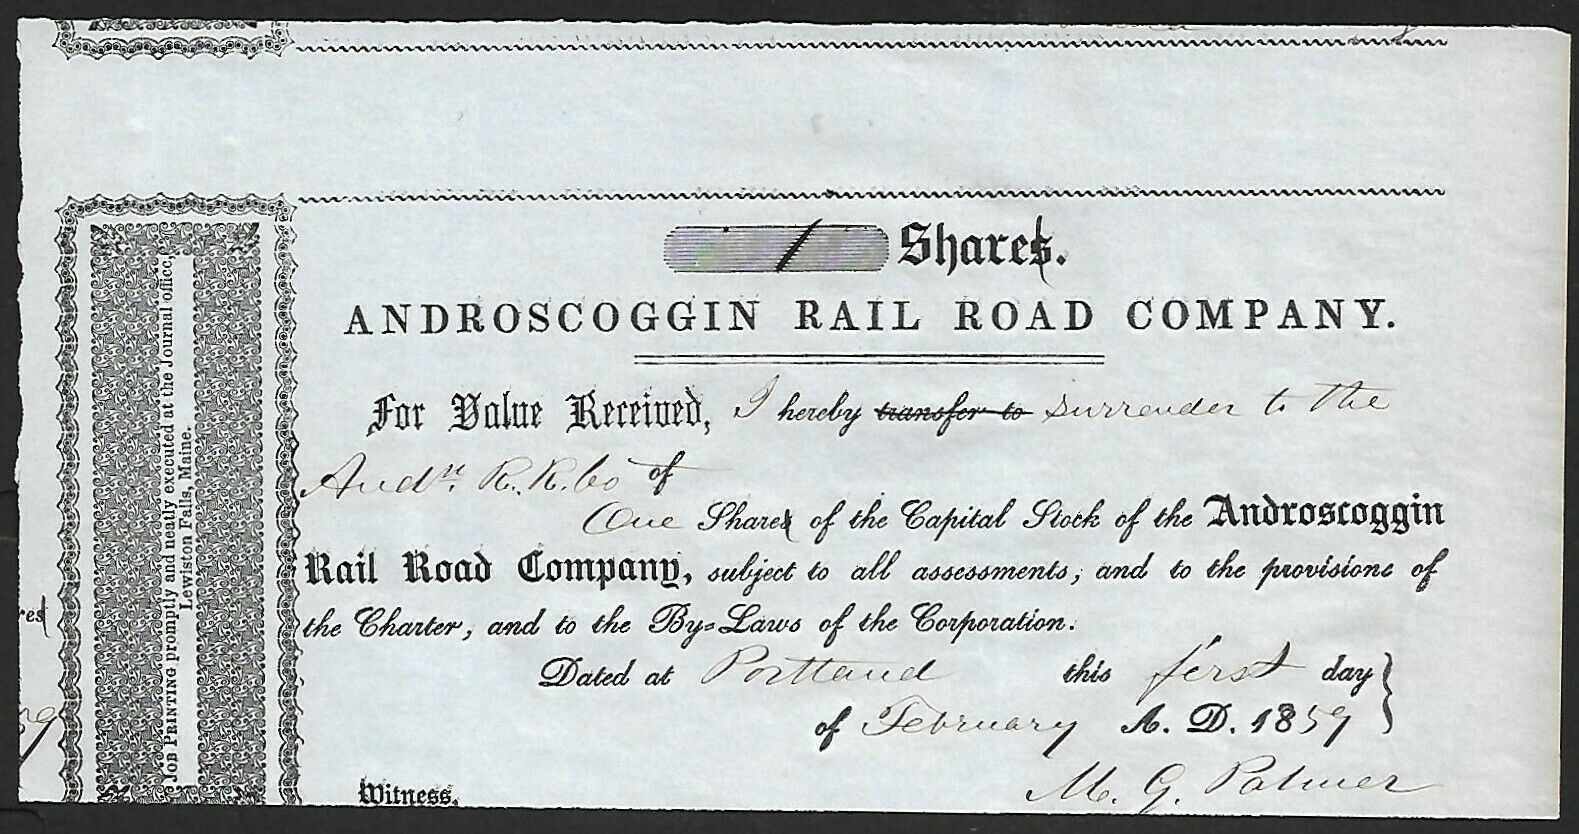 1 Shares.
ANDROSCOGGIN RAIL ROAD COMPANY.
For Value Received, I hereby transfer to surrender to the
Andn. R. R. Co of
One Shares of the Capital Stock of the Androscoggin
Rail Road Company, subject to all assessments, and to the provisions of
the Charter, and to the By-Laws of the Corporation.
Dated at Portland this first day
of February A. D. 1859
M. G. Palmer
Witness,
JOB PRINTING promptly and neatly executed at the Journal office,
Lewiston Falls, Maine.
res
59